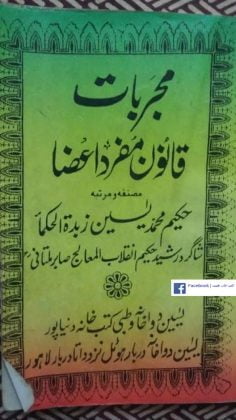 مجربات
قانون مفرد اعضا
مصنفہ و مرتبہ
حکیم محمد یٰسین زبدۃ الحکما
شاگرد رشید حکیم انقلاب المعالج صابر ملتانی
Facebook
یٰسین دواخانہ و طبی کتب خانہ دنیا پور
یٰسین دواخانہ دربار ہوٹل نزد داتا دربار لاہور